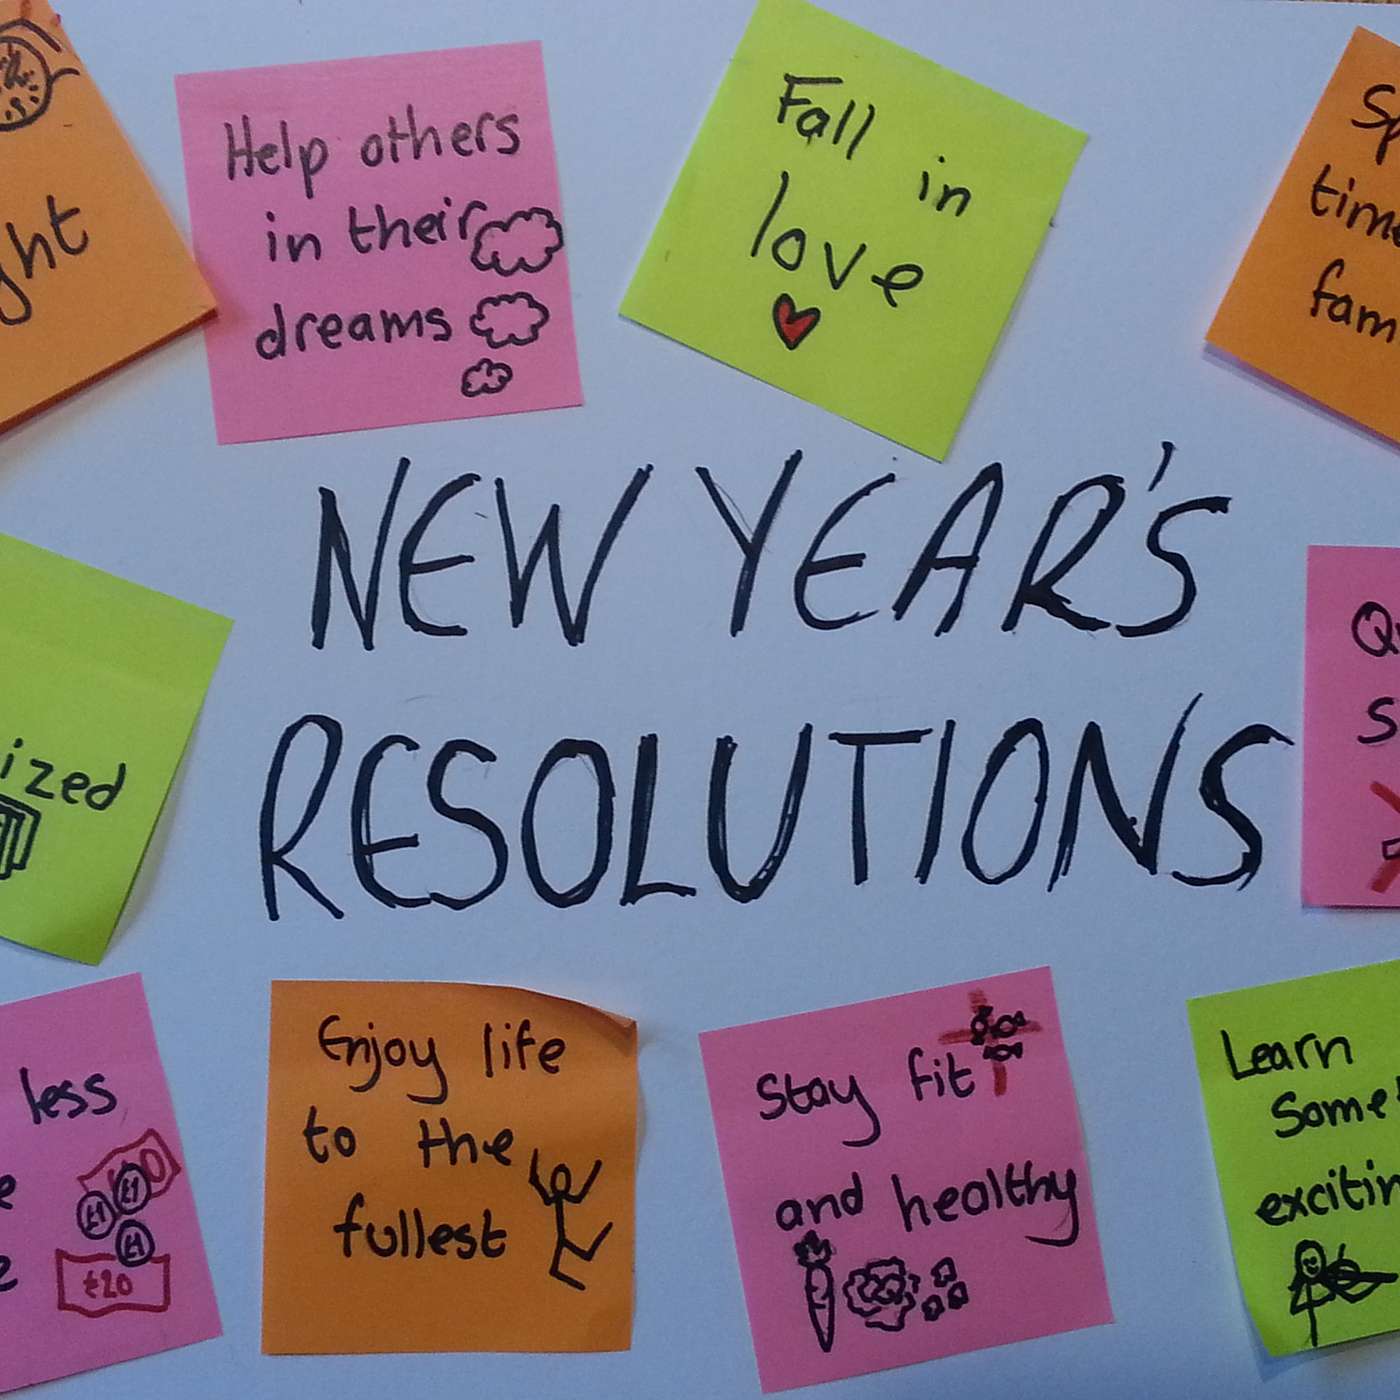 Help others
in their
dreams
Fall in
love
time
fam
NEW YEAR'S
RESOLUTIONS
ized
less
£20
£1
£1
£1
Enjoy life
to the
fullest
Stay fit
and healthy
Learn
Some
excitin